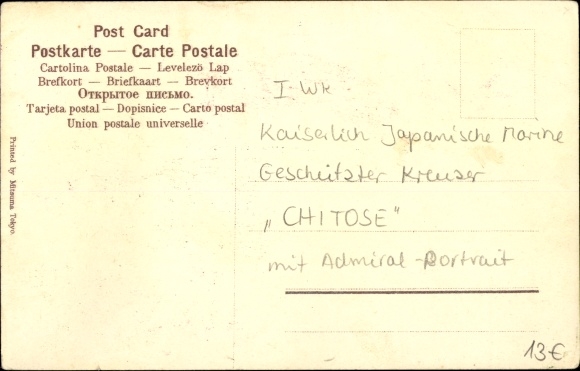 Post Card
Postkarte — Carte Postale
Cartolina Postale — Levelezö Lap
Brefkort — Briefkaart — Brevkort
Открытое письмо.
Tarjeta postal — Dopisnice — Carto postal
Union postale universelle
Printed by Mitsuma Tokyo.
I. WK
Kaiserlich Japanische Marine
Geschützter Kreuzer
„CHITOSE"
mit Admiral-Portrait
13€